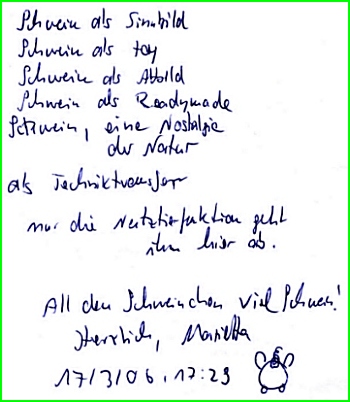 Schwein als Sinnbild
Schwein als toy
Schwein als Abbild
Schwein als Readymade
Schwein, eine Nostalgie
der Natur
als Techniktransfer
nur die Nutztierfunktion geht
ihm hier ab.
All den Schweinchen viel Schwein!
Herzlich, Marietta
17/3/06, 17:29